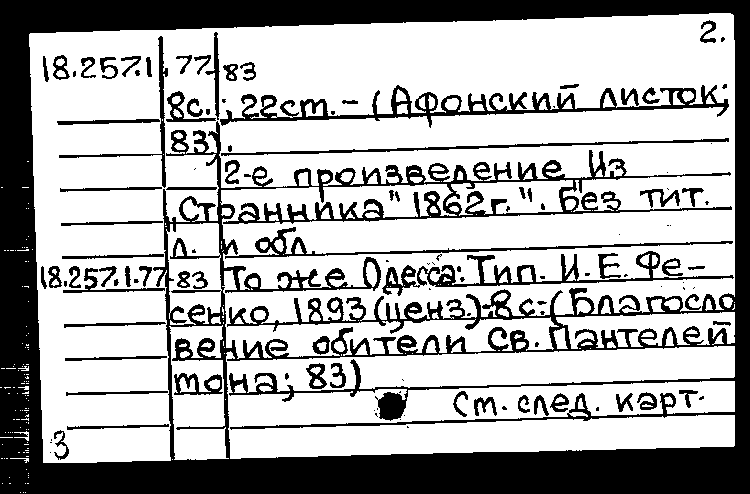 2.
18.257.1.77-83
8с.; 22ст. - (Афонский листок;
83).
2-е произведение „Из
„Странника" 1862г.". Без тит.
л. и обл.
18.257.1.77-83 То же. Одесса: Тип. И.Е.Фе-
сенко, 1893 (ценз.)-8с-(Благосло
вение обители Св. Пантелей
мона; 83)
См. след. карт.
3